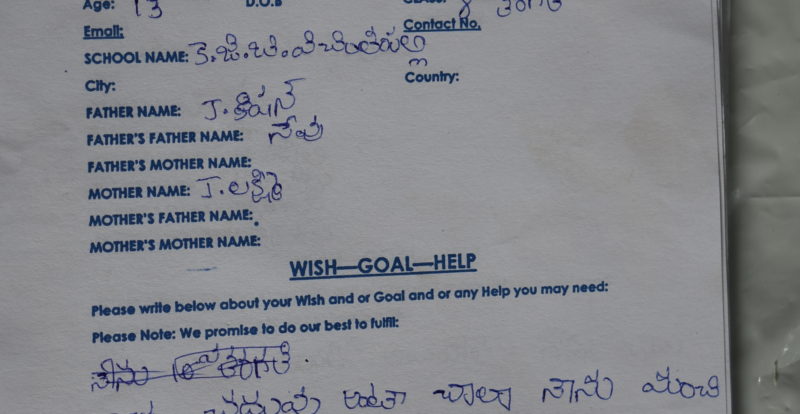 Age: 13 D.O.B 8 తరగతి
Email: Contact No.
SCHOOL NAME: కె.జి.బి.వి
City: Country:
FATHER NAME: J.
FATHER'S FATHER NAME:
FATHER'S MOTHER NAME:
MOTHER NAME: J. లక్ష్మి
MOTHER'S FATHER NAME:
MOTHER'S MOTHER NAME:
WISH—GOAL—HELP
Please write below about your Wish and or Goal and or any Help you may need:
Please Note: We promise to do our best to fulfil:
నేను 10వ తరగతి.
చదువు అంతా చాలా నాను మంచి